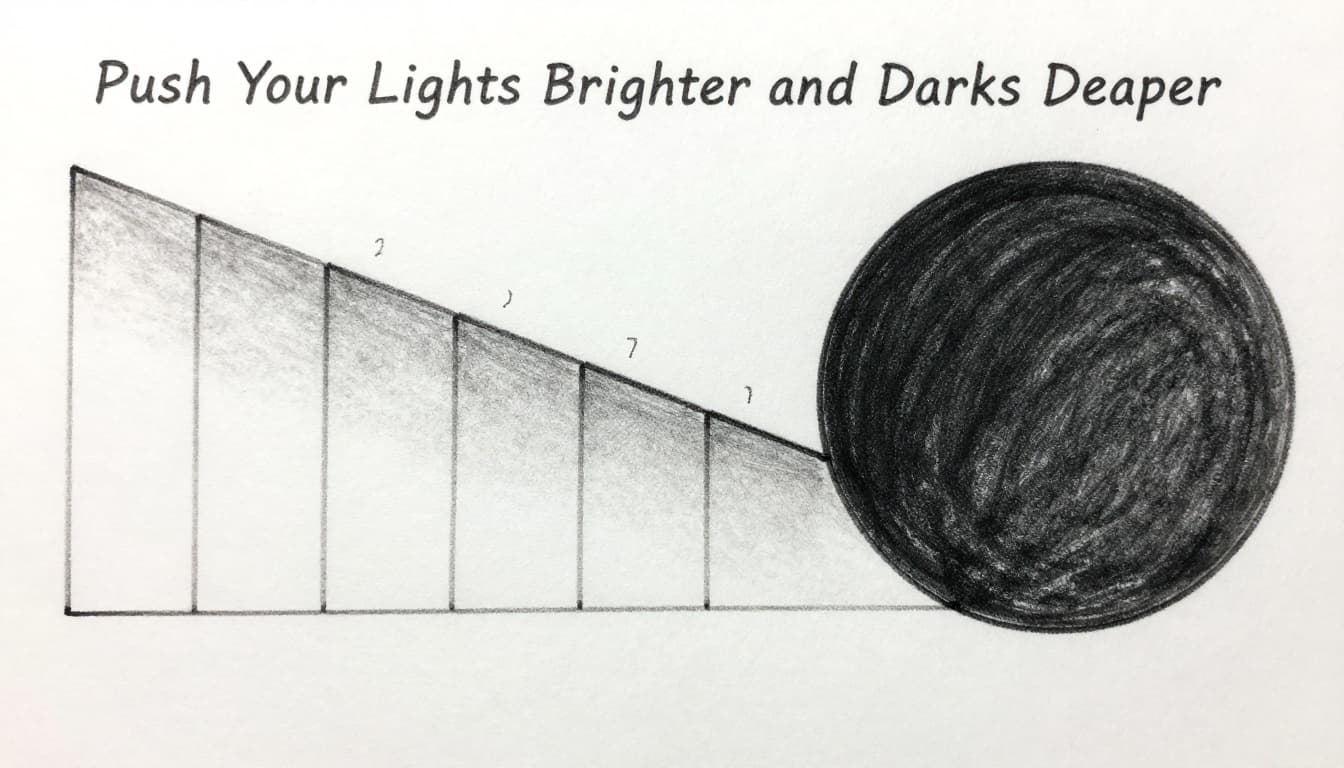 Push Your Lights Brighter and Darks Deaper
2
7